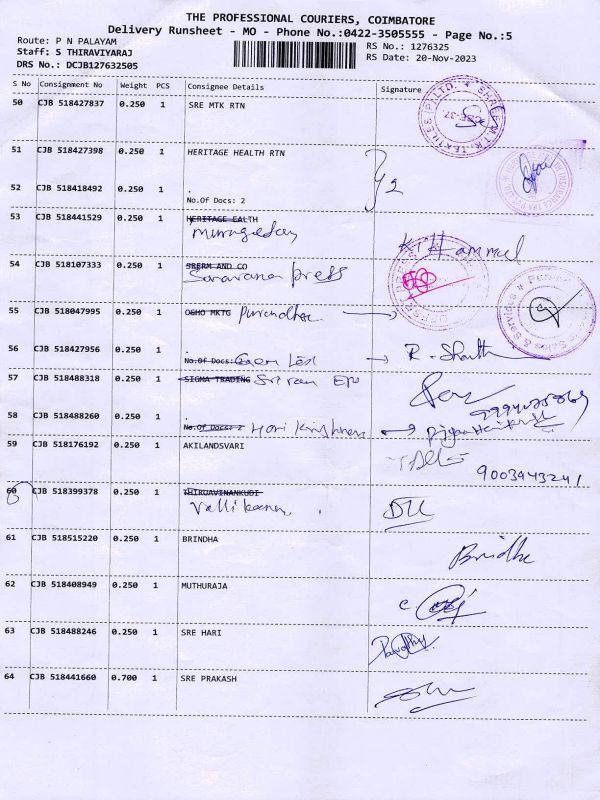 THE PROFESSIONAL COURIERS, COIMBATORE
Delivery Runsheet - MO - Phone No.:0422-3505555 - Page No.:5
Route: P N PALAYAM
Staff: S THIRAVIYARAJ
DRS No.: DCJB127632505
RS No.: 1276325
RS Date: 20-Nov-2023
S No Consignment No Weight PCS Consignee Details Signature
50 CJB 518427837 0.250 1 SRE MTK RTN
51 CJB 518427398 0.250 1 HERITAGE HEALTH RTN
52 CJB 518418492 0.250 1 .
No.Of Docs: 2
53 CJB 518441529 0.250 1 HERITAGE EALTH
54 CJB 518107333 0.250 1 SRERM AND CO
Saravana press
55 CJB 518047995 0.250 1 OSHO MKTG
56 CJB 518427956 0.250 1 .
No.Of Docs: 2
57 CJB 518488318 0.250 1 SIGMA TRADING
58 CJB 518488260 0.250 1 .
No.Of Docs: 2 Hari
59 CJB 518176192 0.250 1 AKILANDSVARI
9003943241
60 CJB 518399378 0.250 1 THIRUAVINANKUDI
61 CJB 518515220 0.250 1 BRINDHA
Brindha
62 CJB 518408949 0.250 1 MUTHURAJA
63 CJB 518488246 0.250 1 SRE HARI
64 CJB 518441660 0.700 1 SRE PRAKASH